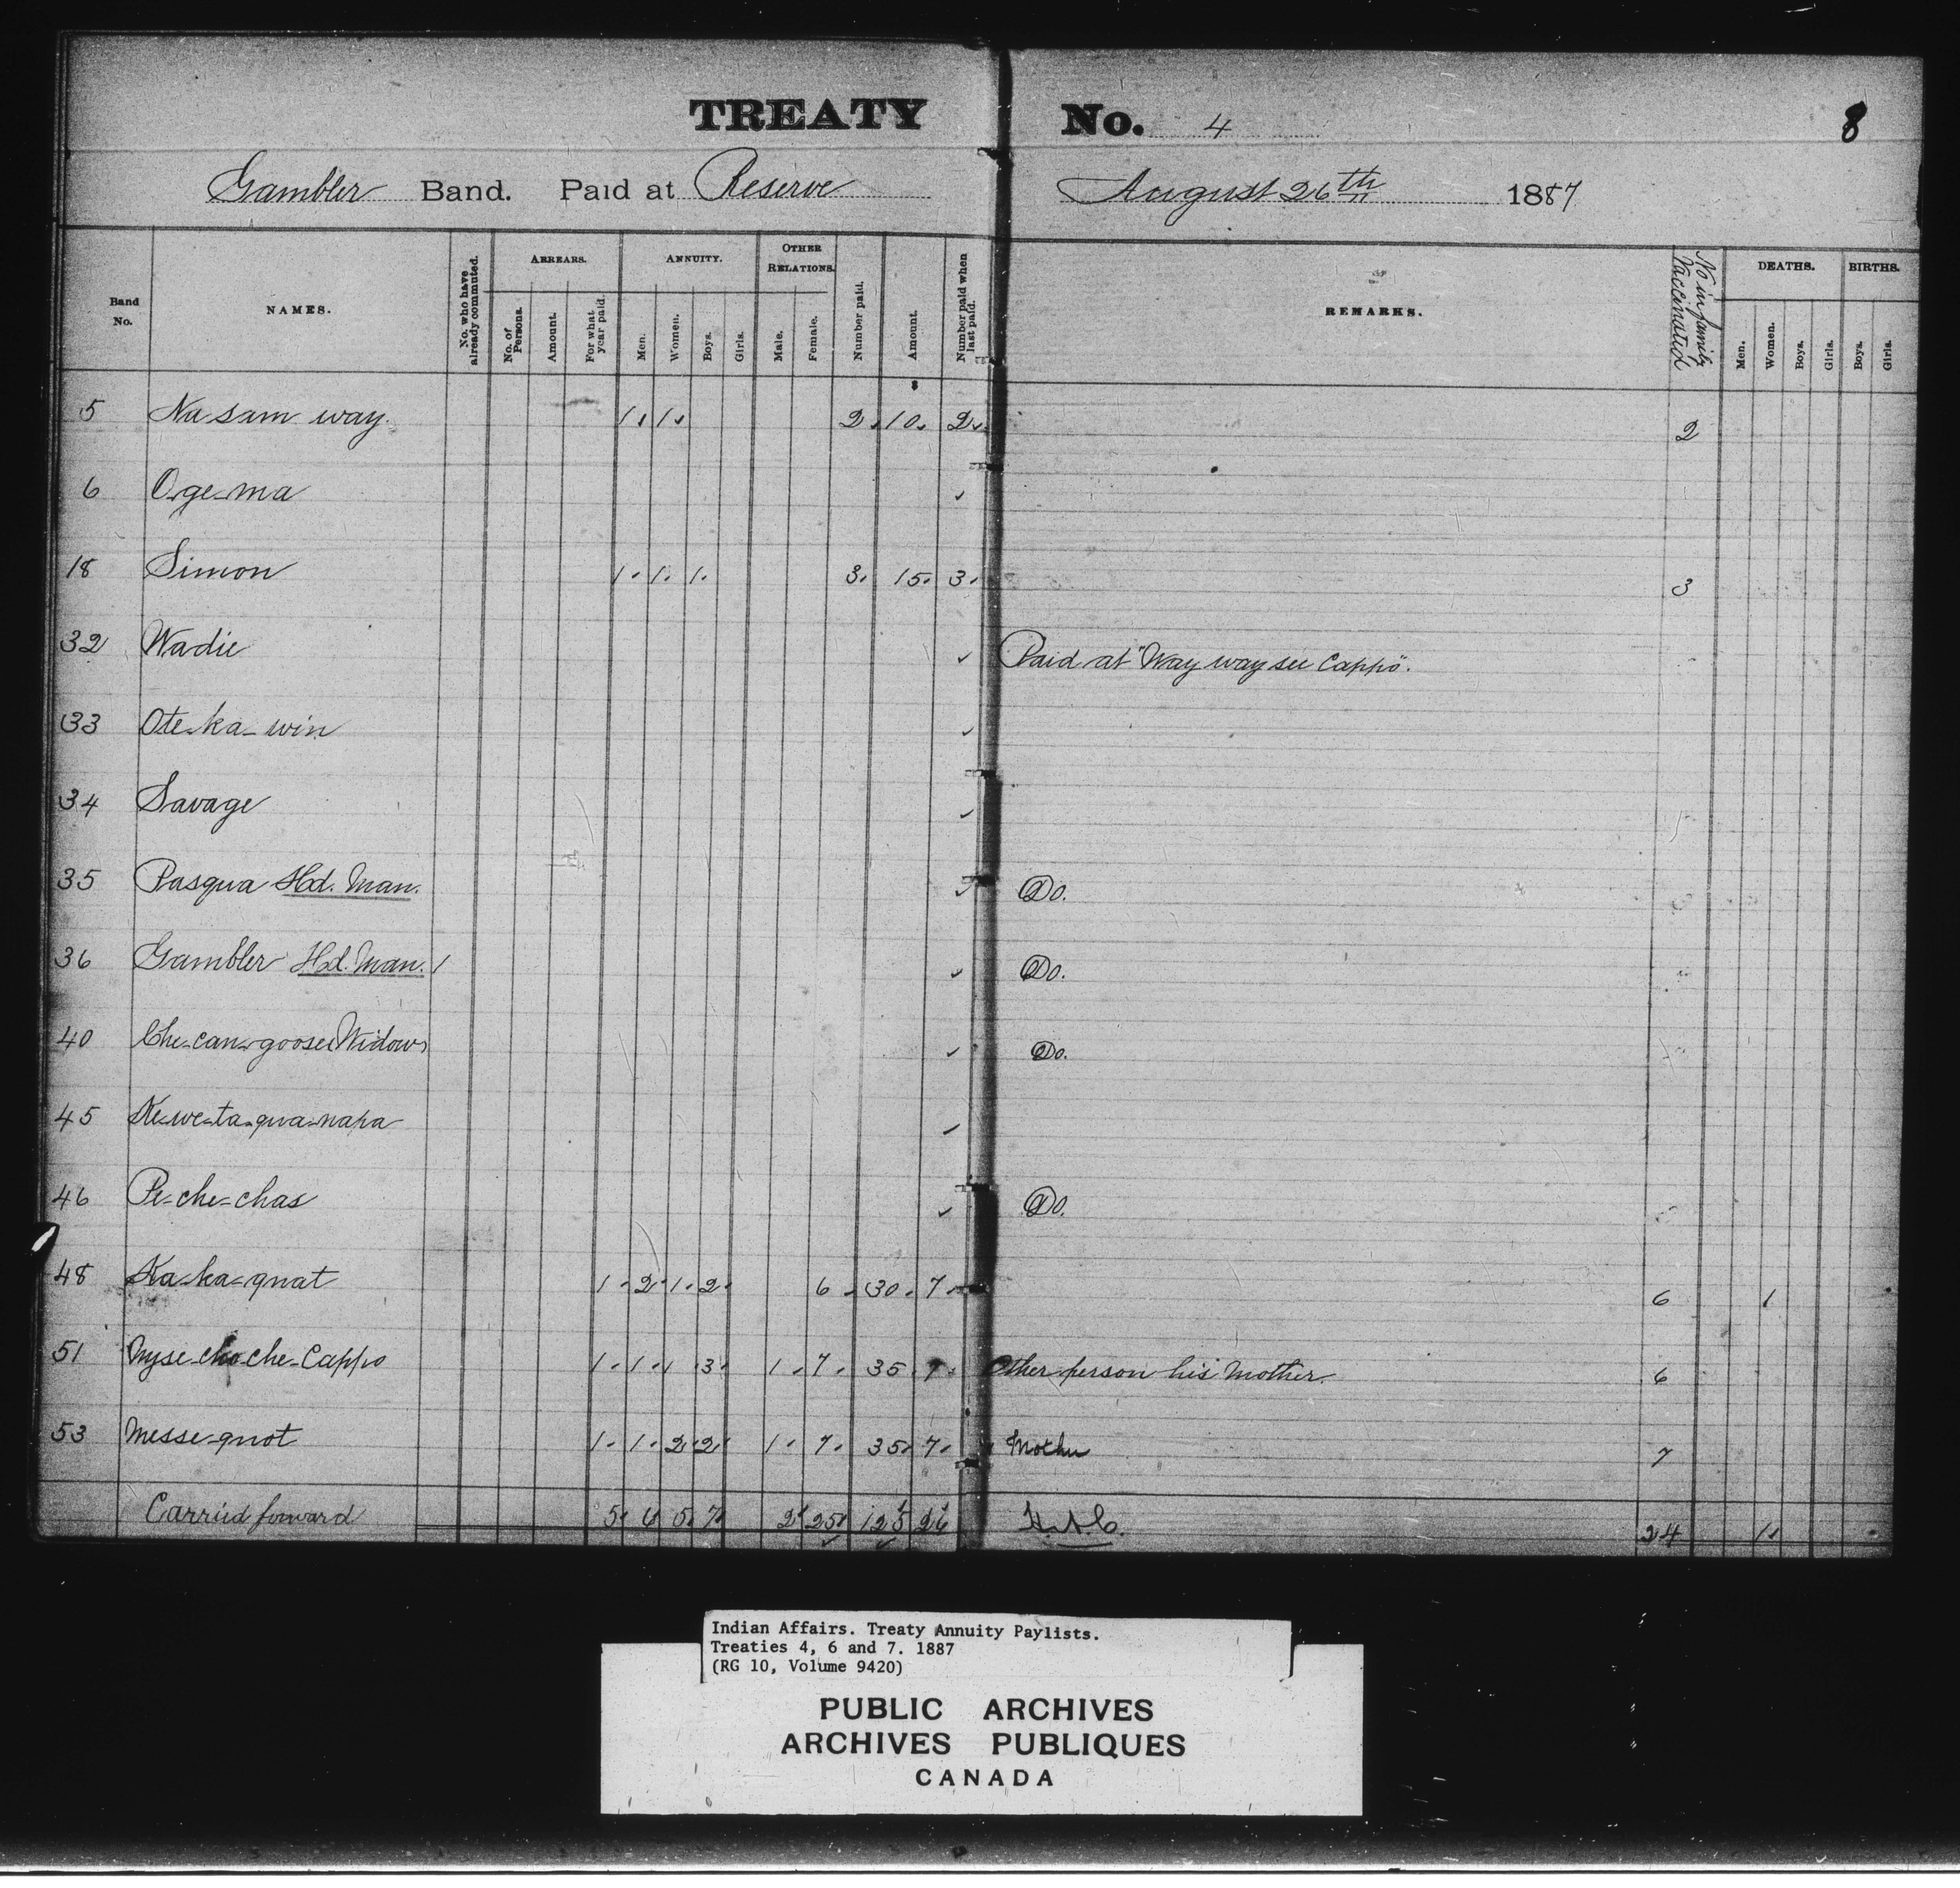 TREATY No. 4
8
Gambler Band. Paid at Reserve August 26th 1887
Band No. NAMES. No. who have already commuted. ARREARS. No. of Persons. Amount. For what year paid. ANNUITY. Men. Women. Boys. Girls. OTHER RELATIONS. Male. Female. Number paid. Amount. Number paid when last paid. REMARKS. No in family Vaccinated DEATHS. Men. Women. Boys. Girls. BIRTHS. Boys. Girls.
$
5 Na sam way. 1. 1. 2. 10. 2 2
6 O-ge-ma ✓
18 Simon 1. 1. 1. 3. 15. 3. 3
32 Wadie ✓ Paid at "Way way see Cappo".
33 Ote-ka-win ✓
34 Savage ✓
35 Pasqua Hd. Man. ✓ Do.
36 Gambler Hd. Man. ✓ Do.
40 Che-can-goose Widow ✓ Do.
45 Ke-we-ta-qua-napa ✓
46 Pe-che-chas ✓ Do.
48 Ka-ka-quat 1. 2. 1. 2. 6. 30. 7. 6 1
51 che-Cappo 1. 1. 1 3. 1. 7. 35. 7. Other person his Mother. 6
53 Messe-quot 1. 1. 2. 2. 1. 7. 35. 7. 7
Carried forward 5. 6 5. 7. 2 25 125 26 24 1.
Indian Affairs. Treaty Annuity Paylists.
Treaties 4, 6 and 7. 1887
(RG 10, Volume 9420)
PUBLIC ARCHIVES
ARCHIVES PUBLIQUES
CANADA